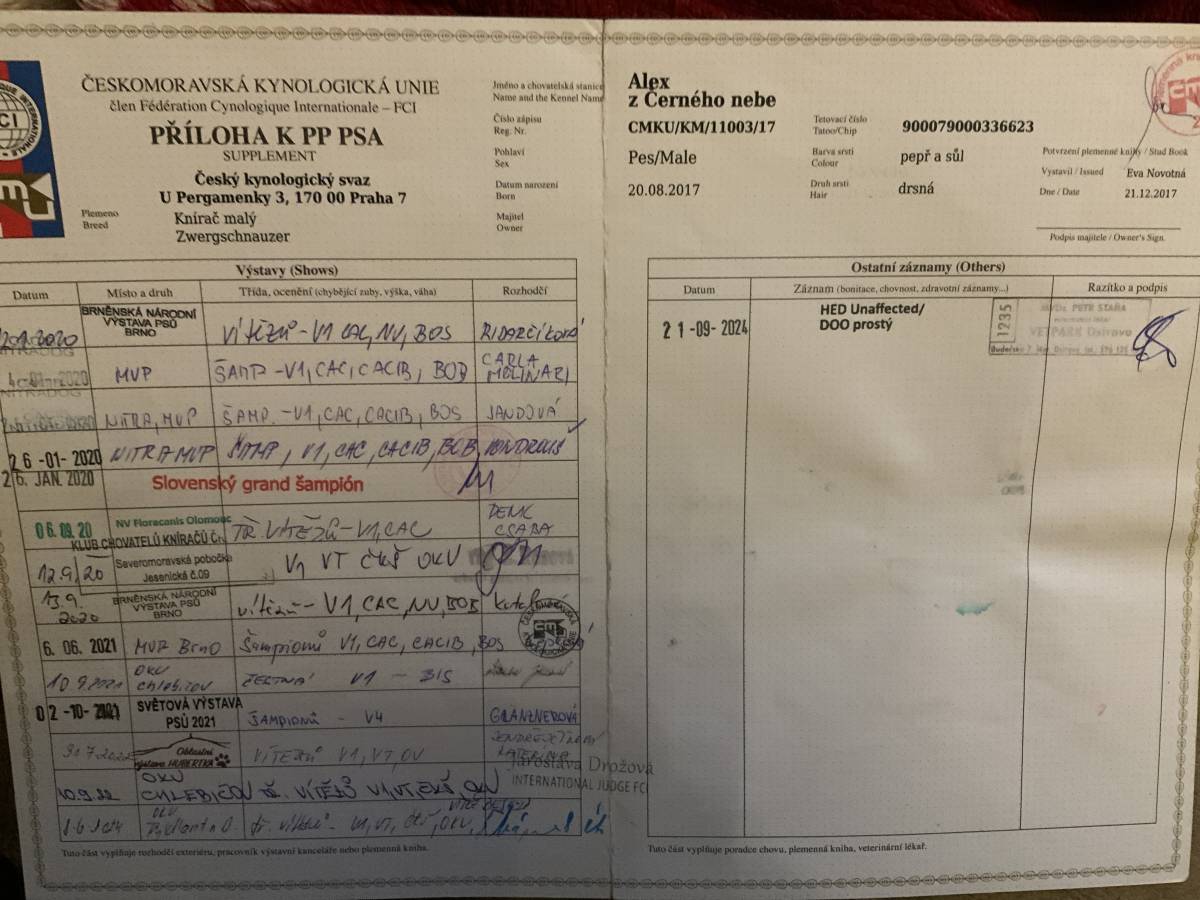 ČESKOMORAVSKÁ KYNOLOGICKÁ UNIE
člen Fédération Cynologique Internationale – FCI
PŘÍLOHA K PP PSA
SUPPLEMENT
Český kynologický svaz
U Pergamenky 3, 170 00 Praha 7
Plemeno
Breed
Knírač malý
Zwergschnauzer
Jméno a chovatelská stanice
Name and the Kennel Name
Číslo zápisu
Reg. Nr.
Pohlaví
Sex
Datum narození
Born
Majitel
Owner
Alex
z Černého nebe
CMKU/KM/11003/17
Pes/Male
20.08.2017
Tetovací číslo
Tatoo/Chip
900079000336623
Barva srsti
Colour
pepř a sůl
Druh srsti
Hair
drsná
Potvrzení plemenné knihy / Stud Book
Vystavil / Issued Eva Novotná
Dne / Date 21.12.2017
Podpis majitele / Owner's Sign.
Výstavy (Shows)
Datum Místo a druh Třída, ocenění (chybějící zuby, výška, váha) Rozhodčí
2020 BRNĚNSKÁ NÁRODNÍ
VÝSTAVA PSŮ
BRNO
VÍTĚZŮ - V1 CAC, NV, BOS
MVP ŠAMP - V1, CAC, CACIB, BOB CARLA
MOLINARI
NITRA, MVP ŠAMP. - V1, CAC, CACIB, BOS JANDOVÁ
26 -01- 2020 NITRA MVP ŠAMP, V1, CAC, CACIB, BOB
26. JAN. 2020 Slovenský grand šampión
06.09.20 NV Floracanis Olomouc TŘ. VÍTĚZŮ - V1, CAC DENK
CSABA
KLUB CHOVATELŮ KNÍRAČŮ
12.9./20 Severomoravská pobočka
Jesenická č.09
V1 VT ČKŠ OKV
13.9.
2020
BRNĚNSKÁ NÁRODNÍ
VÝSTAVA PSŮ
BRNO
vítězů - V1, CAC, NV, BOB
6. 06. 2021 MVP Brno Šampionů V1, CAC, CACIB, BOS
10.9.2021 OKV
Chlebičov
ČESTNÁ V1 - BIS
02 -10- 2021 SVĚTOVÁ VÝSTAVA
PSŮ 2021
ŠAMPIONŮ - V4 GLANZNEROVÁ
Oblastní
výstava HUBERTKA
VÍTĚZŮ V1, VT, OV
Jaroslava Drožová
INTERNATIONAL JUDGE FCI
10.9.22 OKV
CHLEBIČOV TŘ. VÍTĚZŮ V1 VT ČKŠ, OKV
OKV
tř. vítězů - V1, VT, ČKŠ, OKV
Tuto část vyplňuje rozhodčí exteriéru, pracovník výstavní kanceláře nebo plemenná kniha.
Ostatní záznamy (Others)
Datum Záznam (bonitace, chovnost, zdravotní záznamy...) Razítko a podpis
21-09-2024 HED Unaffected/
DOO prostý
1235
MVDr. PETR STAŇA
VETPARK Ostrava
Tuto část vyplňuje poradce chovu, plemenná kniha, veterinární lékař.